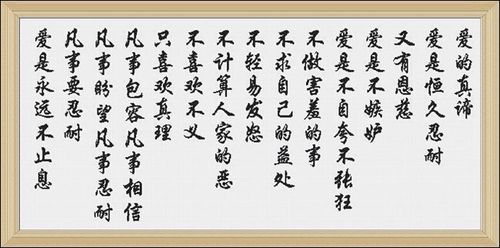 爱的真谛
爱是恒久忍耐
又有恩慈
爱是不嫉妒
爱是不自夸不张狂
不做害羞的事
不求自己的益处
不轻易发怒
不计算人家的恶
不喜欢不义
只喜欢真理
凡事包容凡事相信
凡事盼望凡事忍耐
凡事要忍耐
爱是永远不止息